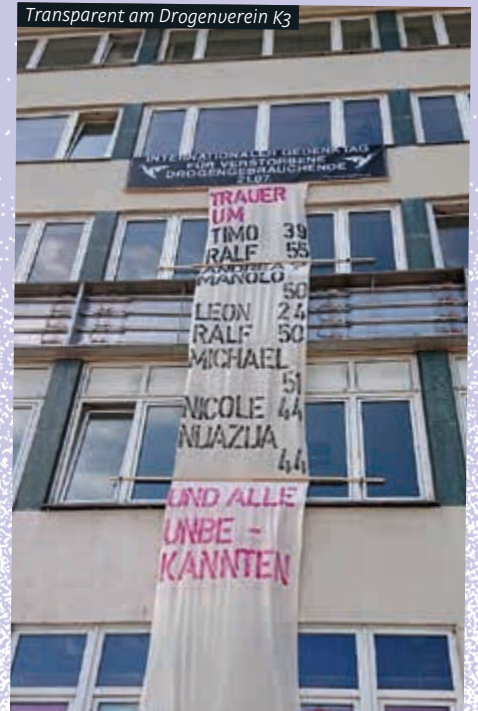 Transparent am Drogenverein K3
INTERNATIONALER GEDENKTAG
FÜR VERSTORBENE
DROGENGEBRAUCHENDE
21.07.
TRAUER
UM
TIMO 39
RALF 55
MANOLO
50
LEON 24
RALF 50
MICHAEL
51
NICOLE 44
44
UND ALLE
UNBE -
KANNTEN